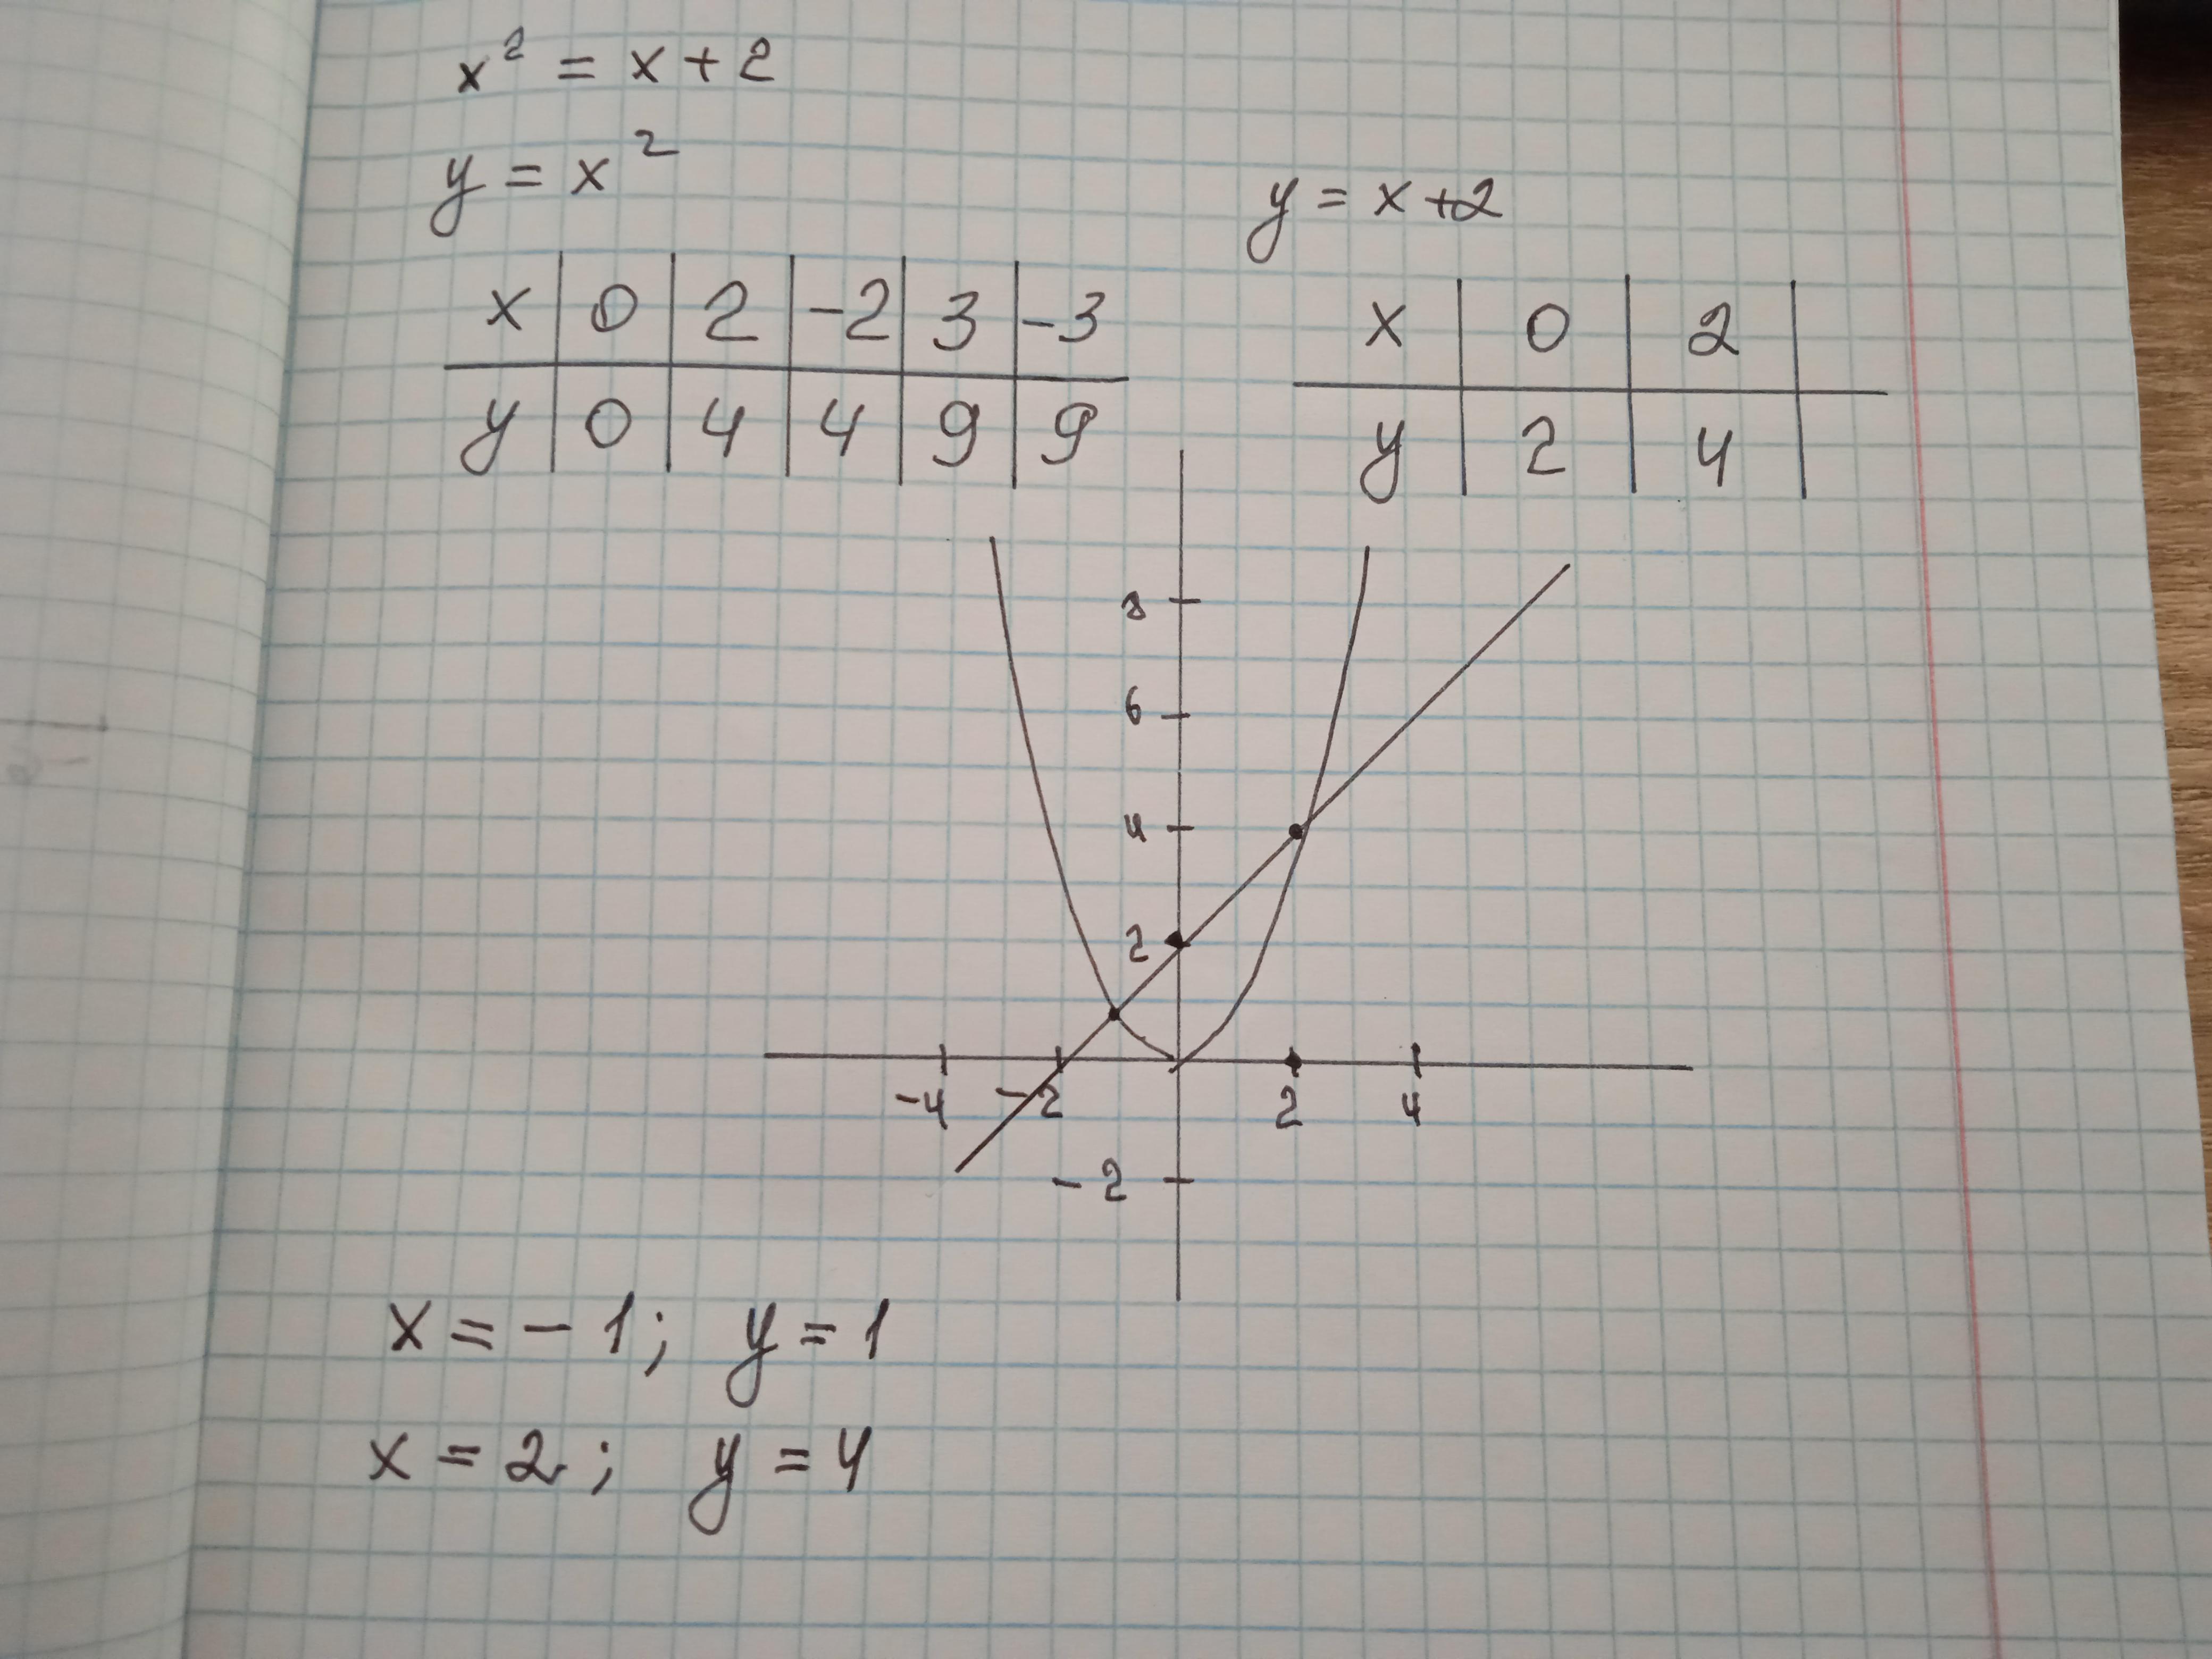 x² = x + 2
y = x²
y = x + 2
x 0 2 -2 3 -3
y 0 4 4 9 9
x 0 2
y 2 4
8
6
4
2
-4 -2 2 4
-2
x = -1; y = 1
x = 2; y = 4